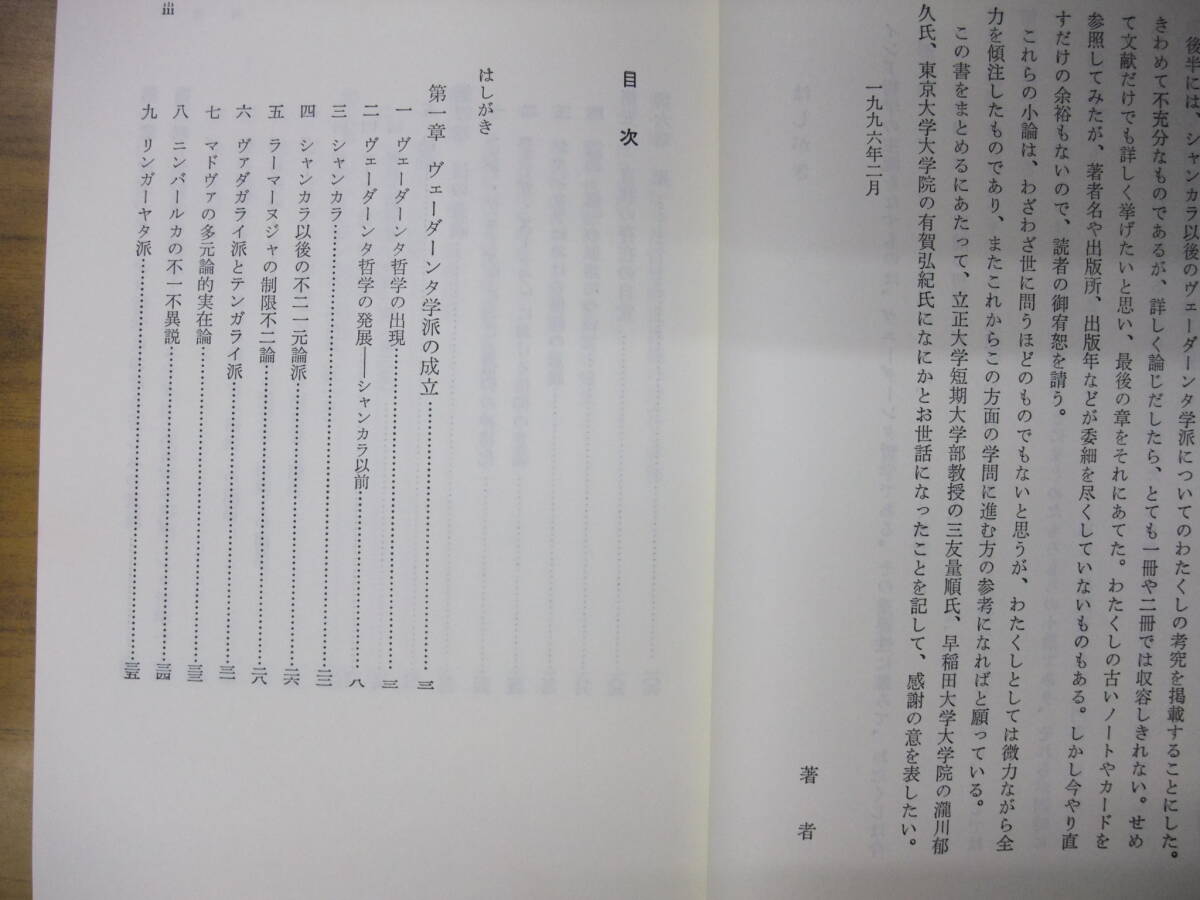 後半には、シャンカラ以後のヴェーダーンタ学派についてのわたくしの考究を掲載することにした。
きわめて不充分なものであるが、詳しく論じだしたら、とても一冊や二冊では収容しきれない。せめ
て文献だけでも詳しく挙げたいと思い、最後の章をそれにあてた。わたくしの古いノートやカードを
参照してみたが、著者名や出版所、出版年などが委細を尽くしていないものもある。しかし今やり直
すだけの余裕もないので、読者の御宥恕を請う。
これらの小論は、わざわざ世に問うほどのものでもないと思うが、わたくしとしては微力ながら全
力を傾注したものであり、またこれからこの方面の学問に進む方の参考になればと願っている。
この書をまとめるにあたって、立正大学短期大学部教授の三友量順氏、早稲田大学大学院の瀧川郁
久氏、東京大学大学院の有賀弘紀氏になにかとお世話になったことを記して、感謝の意を表したい。
一九九六年二月
著 者
目 次
はしがき
第一章 ヴェーダーンタ学派の成立……三
一 ヴェーダーンタ哲学の出現……三
二 ヴェーダーンタ哲学の発展――シャンカラ以前……八
三 シャンカラ……二三
四 シャンカラ以後の不二一元論派……二六
五 ラーマーヌジャの制限不二論……二八
六 ヴァダガライ派とテンガライ派……三一
七 マドヴァの多元論的実在論……三三
八 ニンバールカの不一不異説……三四
九 リンガーヤタ派……三五
iii